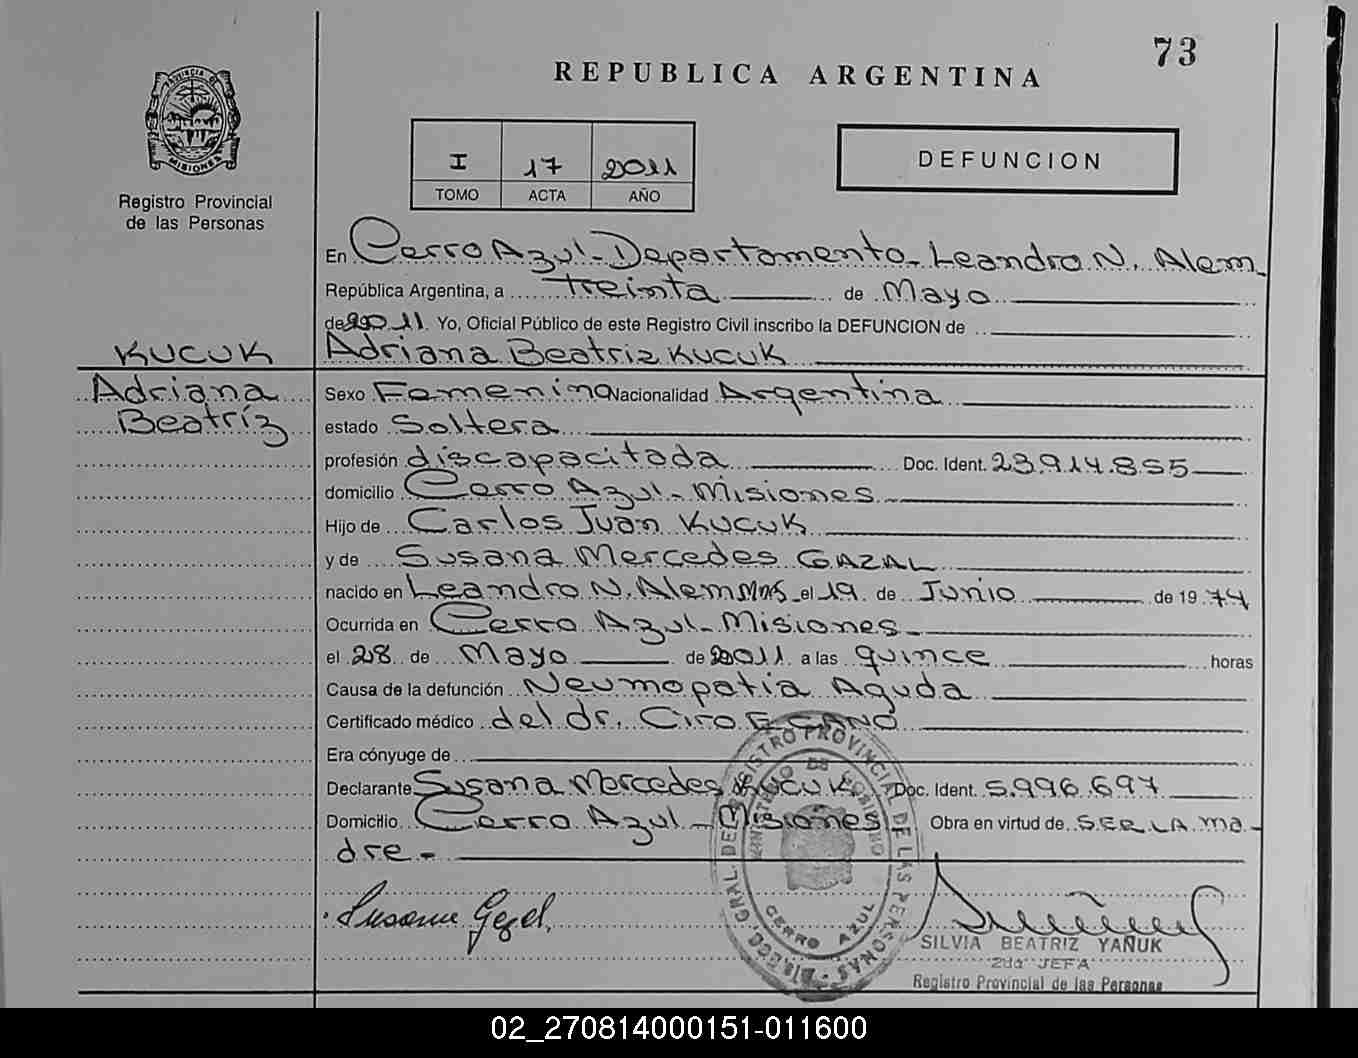 73
REPUBLICA ARGENTINA
PROVINCIA DE
MISIONES
Registro Provincial
de las Personas
I 17 2011
TOMO ACTA AÑO
DEFUNCION
En Cerro Azul - Departamento - Leandro N. Alem -
República Argentina, a treinta de Mayo
de 2011. Yo, Oficial Público de este Registro Civil inscribo la DEFUNCION de
KUCUK Adriana Beatriz KUCUK
Adriana Sexo Femenina Nacionalidad Argentina
Beatríz estado Soltera
profesión discapacitada Doc. Ident. 23.914.855
domicilio Cerro Azul - Misiones
Hijo de Carlos Juan KUCUK
y de Susana Mercedes GAZAL
nacido en Leandro N. Alem Mns. el 19 de Junio de 1974
Ocurrida en Cerro Azul - Misiones -
el 28 de Mayo de 2011 a las quince horas
Causa de la defunción Neumopatia Aguda
Certificado médico del dr. Ciro
Era cónyuge de
Declarante Susana Mercedes KUCUK Doc. Ident. 5.996.697
Domicilio Cerro Azul - Misiones Obra en virtud de SER LA ma-
dre -
Susana Gazal
DIRECC. GRAL. DEL REGISTRO PROVINCIAL DE LAS PERSONAS
MINISTERIO DE GOBIERNO
CERRO AZUL
SILVIA BEATRIZ YAÑUK
2da JEFA
Registro Provincial de las Personas
02_270814000151-011600